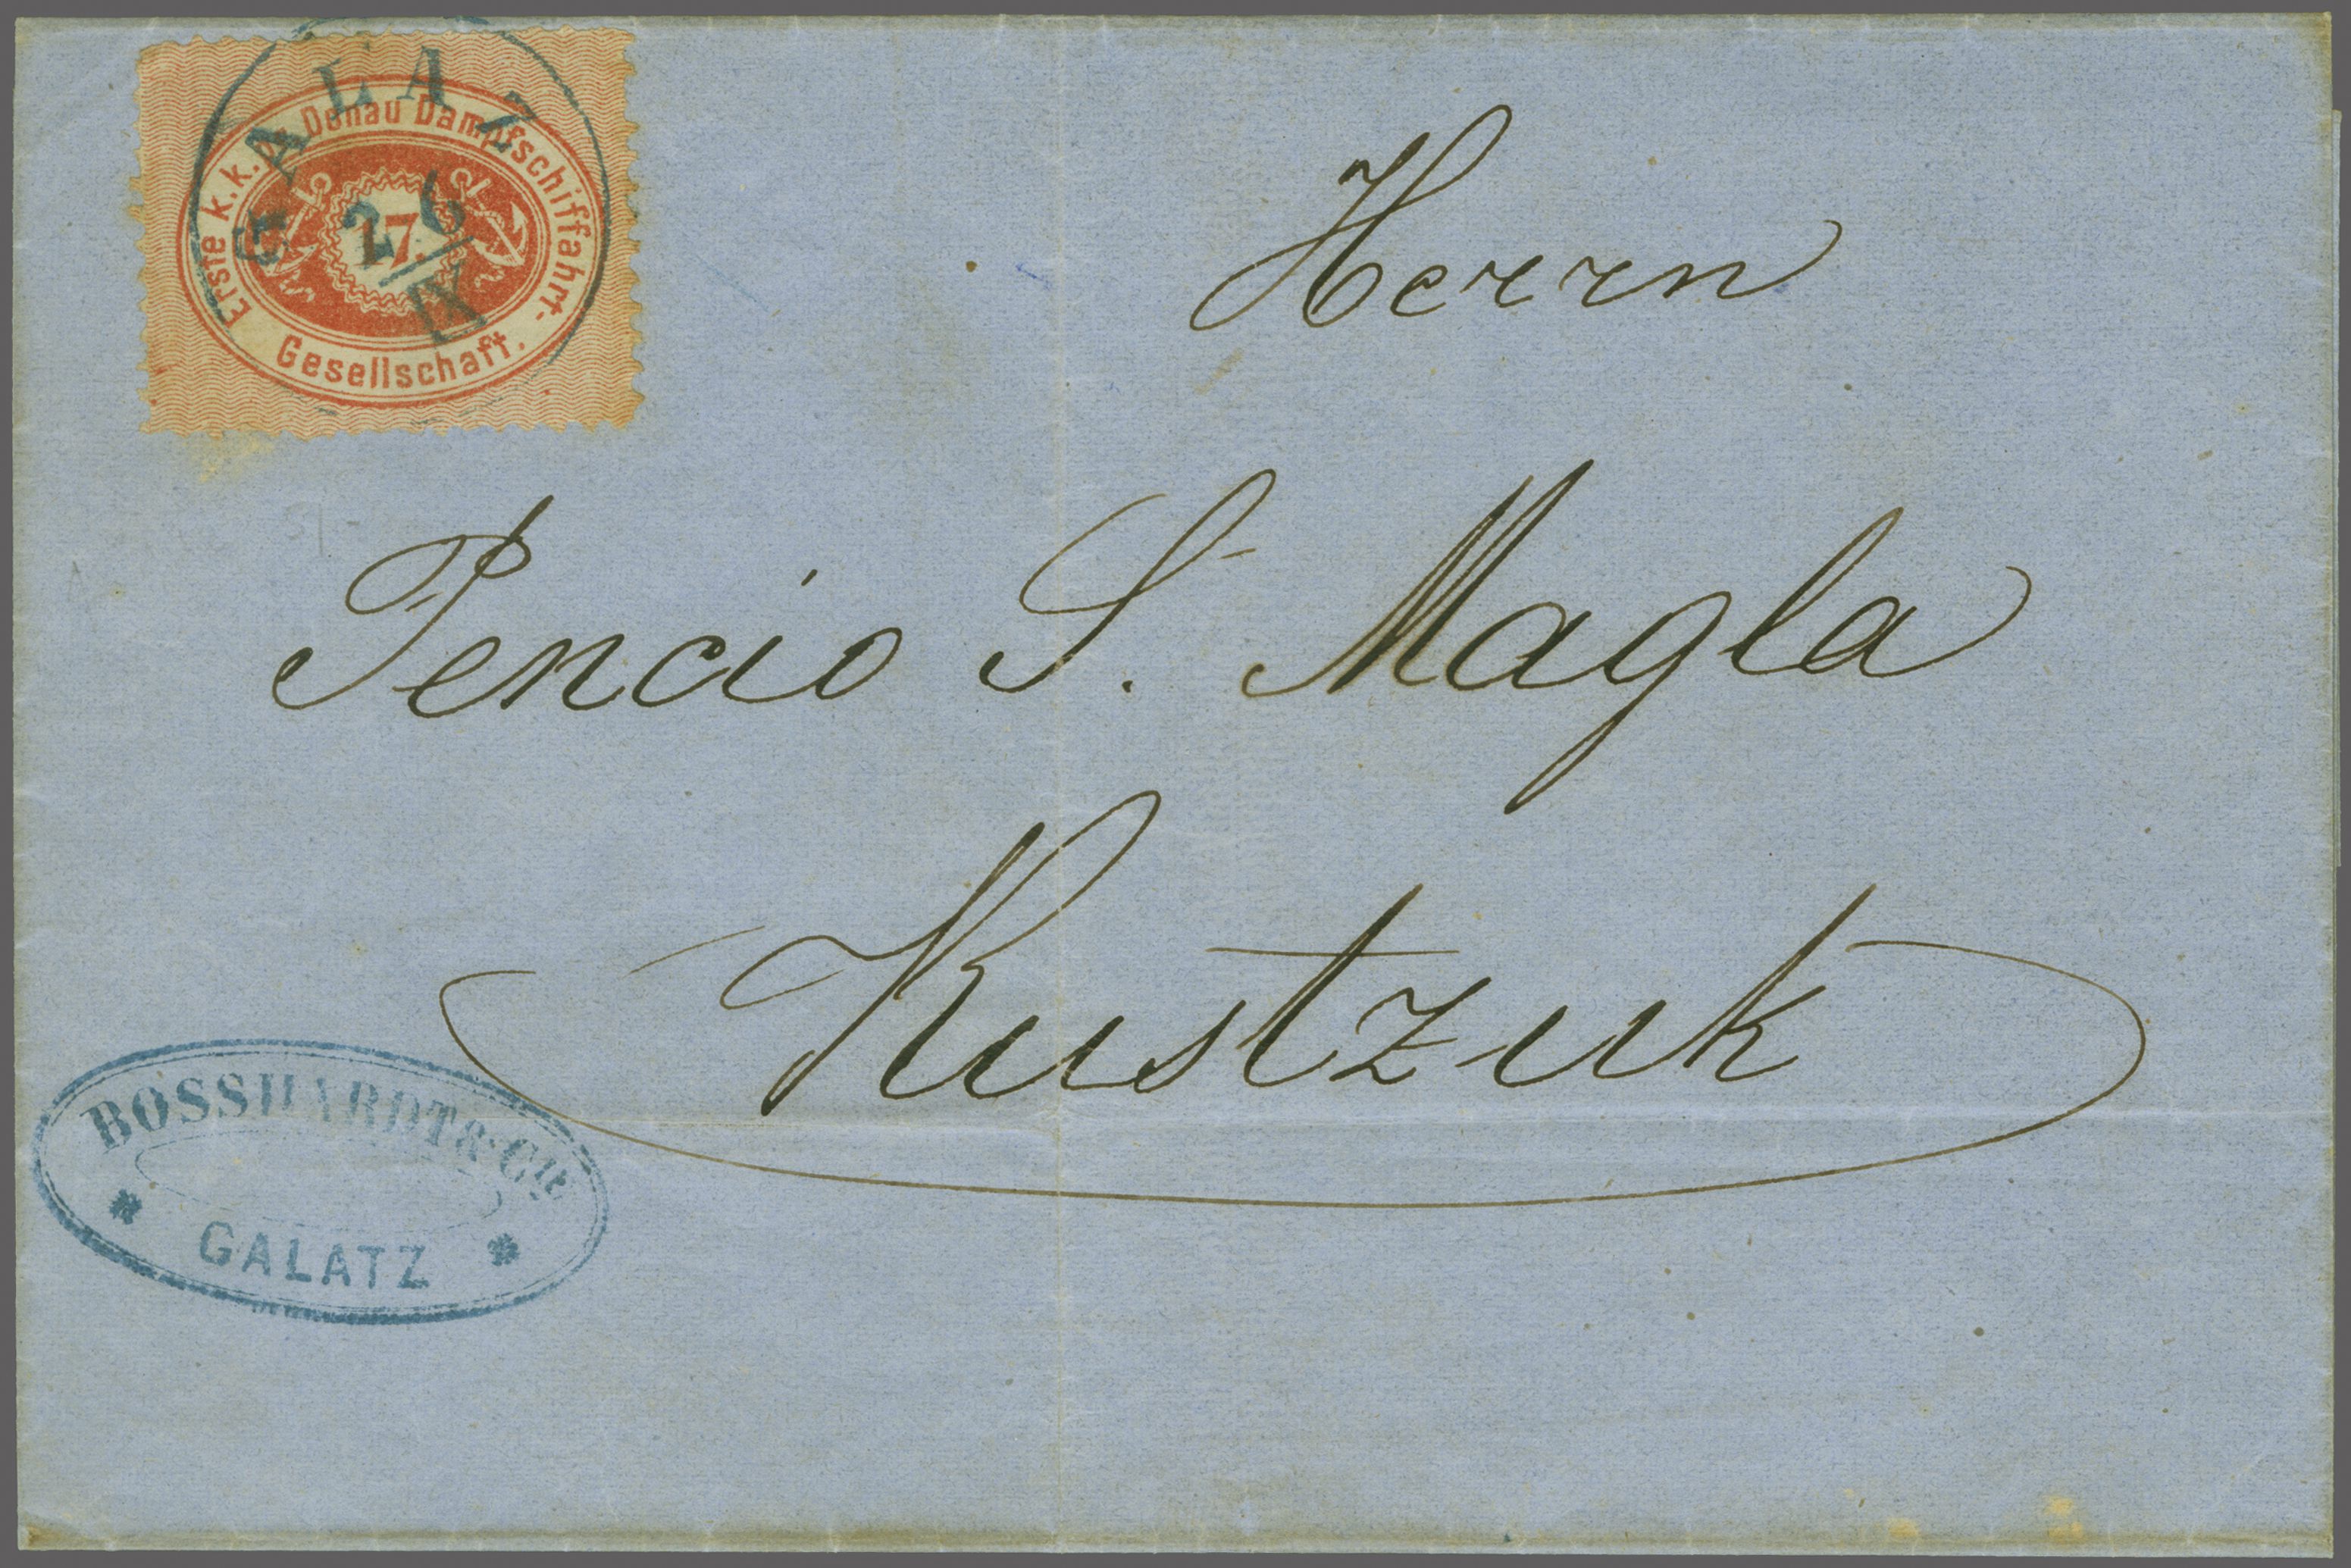 Erste k.k. pr. Donau Dampfschiffahrt-
Gesellschaft.
17.
GALAZ
26
IX
Herrn
Pencio S. Magla
Rustzuk
BOSSHARDT & Co.
GALATZ